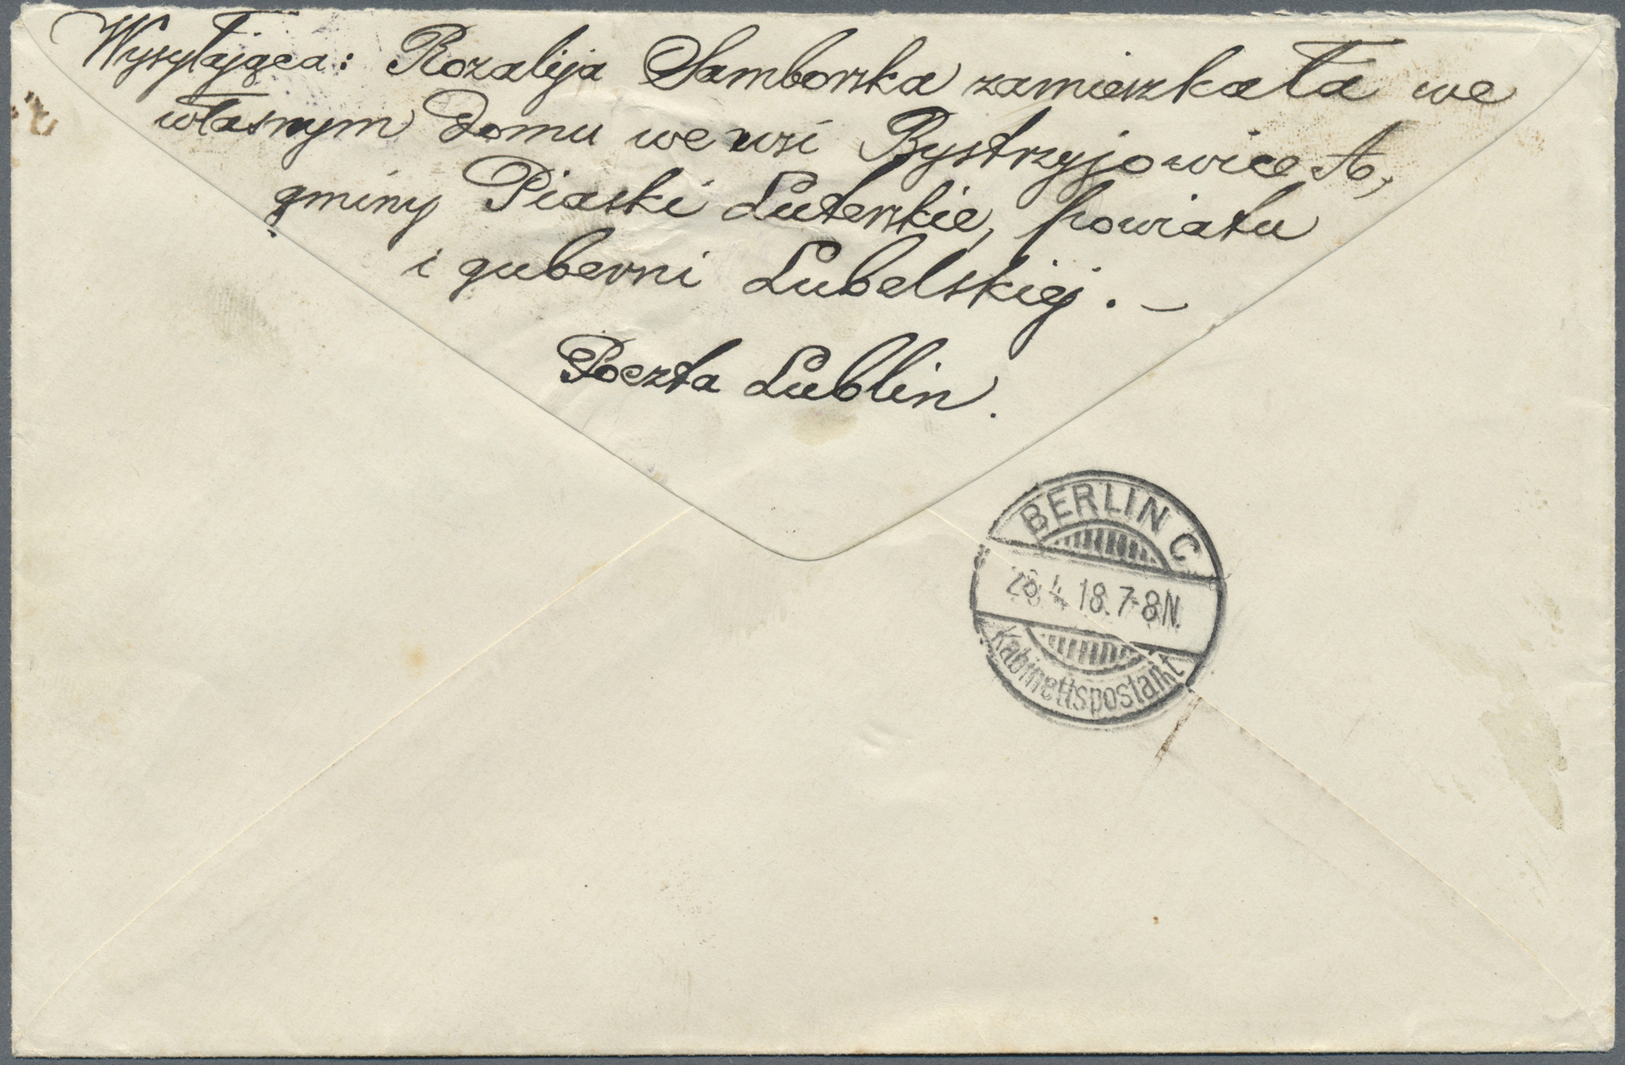 Wysyłająca: Rozalija Samborska zamieszkała we
własnym domu we wsi Bystrzyjowice A,
gminy Piaski Luterskie, powiatu
i guberni Lubelskiej. –
Poczta Lublin.
BERLIN C
4.18.7-8N.
Kabinettspostamt